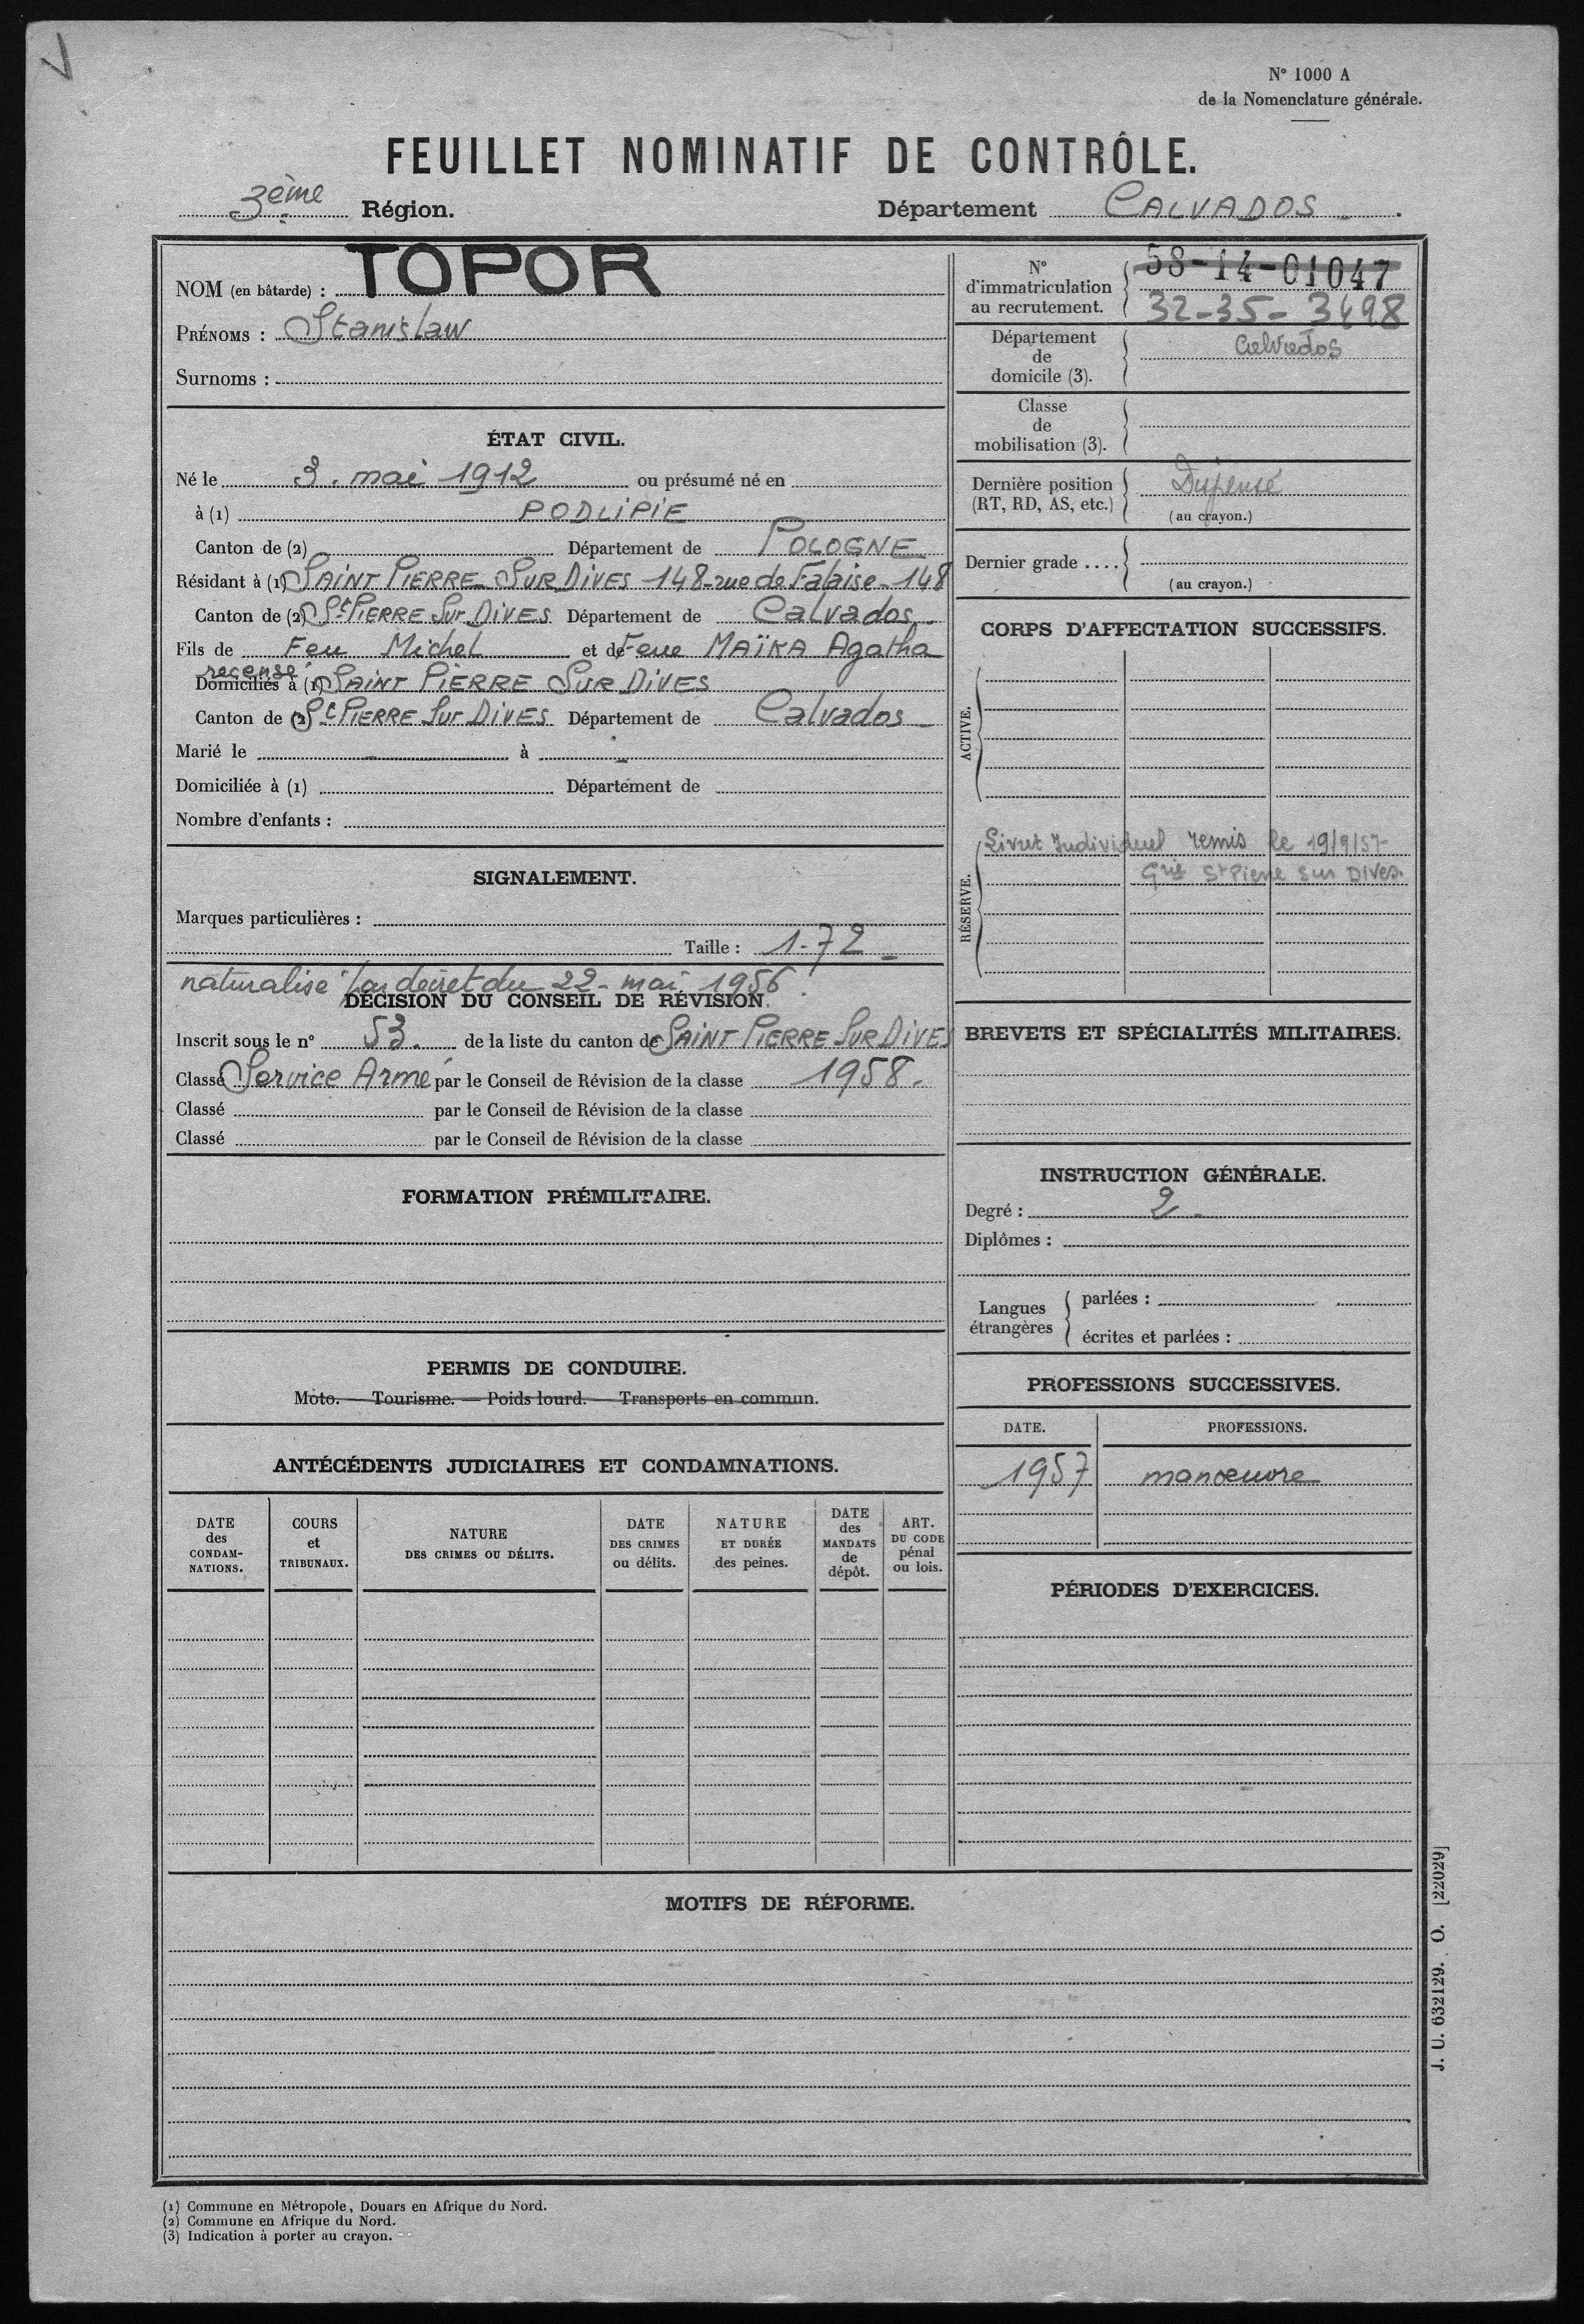 N° 1000 A
de la Nomenclature générale.
FEUILLET NOMINATIF DE CONTRÔLE.
3ème Région. Département CALVADOS.
NOM (en bâtarde) : TOPOR
PRÉNOMS : Stanislaw
Surnoms :
ÉTAT CIVIL.
Né le 3. mai 1912 ou présumé né en
à (1) PODLIPIE
Canton de (2) Département de POLOGNE
Résidant à (1) SAINT PIERRE SUR DIVES 148-rue de Falaise-148
Canton de (2) St PIERRE Sur DIVES Département de Calvados.
Fils de Feu Michel et de Feue MAÏKA Agatha
recensé
Domiciliés à (1) SAINT PIERRE SUR DIVES
Canton de (2) St PIERRE Sur DIVES Département de Calvados
Marié le à
Domiciliée à (1) Département de
Nombre d'enfants :
SIGNALEMENT.
Marques particulières :
Taille : 1-72
naturalisé par décret du 22 - mai 1956
DÉCISION DU CONSEIL DE RÉVISION.
Inscrit sous le n° 53. de la liste du canton de SAINT PIERRE SUR DIVES
Classé Service Armé par le Conseil de Révision de la classe 1958.
Classé par le Conseil de Révision de la classe
Classé par le Conseil de Révision de la classe
FORMATION PRÉMILITAIRE.
PERMIS DE CONDUIRE.
Moto. — Tourisme. — Poids lourd. — Transports en commun.
ANTÉCÉDENTS JUDICIAIRES ET CONDAMNATIONS.
DATE des CONDAM-NATIONS.
COURS et TRIBUNAUX.
NATURE DES CRIMES OU DÉLITS.
DATE DES CRIMES ou délits.
NATURE ET DURÉE des peines.
DATE des MANDATS de dépôt.
ART. DU CODE pénal ou lois.
N° d'immatriculation au recrutement.
58-14-01047
32-35-3498
Département de domicile (3). Calvados
Classe de mobilisation (3).
Dernière position (RT, RD, AS, etc.) Dispensé
(au crayon.)
Dernier grade ....
(au crayon.)
CORPS D'AFFECTATION SUCCESSIFS.
ACTIVE.
RÉSERVE.
Livret Individuel remis le 19/9/57
St Pierre sur DIVES.
BREVETS ET SPÉCIALITÉS MILITAIRES.
INSTRUCTION GÉNÉRALE.
Degré : 2
Diplômes :
Langues étrangères
parlées :
écrites et parlées :
PROFESSIONS SUCCESSIVES.
DATE. PROFESSIONS.
1957 manœuvre
PÉRIODES D'EXERCICES.
MOTIFS DE RÉFORME.
J. U. 632129. O. [22029]
(1) Commune en Métropole, Douars en Afrique du Nord.
(2) Commune en Afrique du Nord.
(3) Indication à porter au crayon.